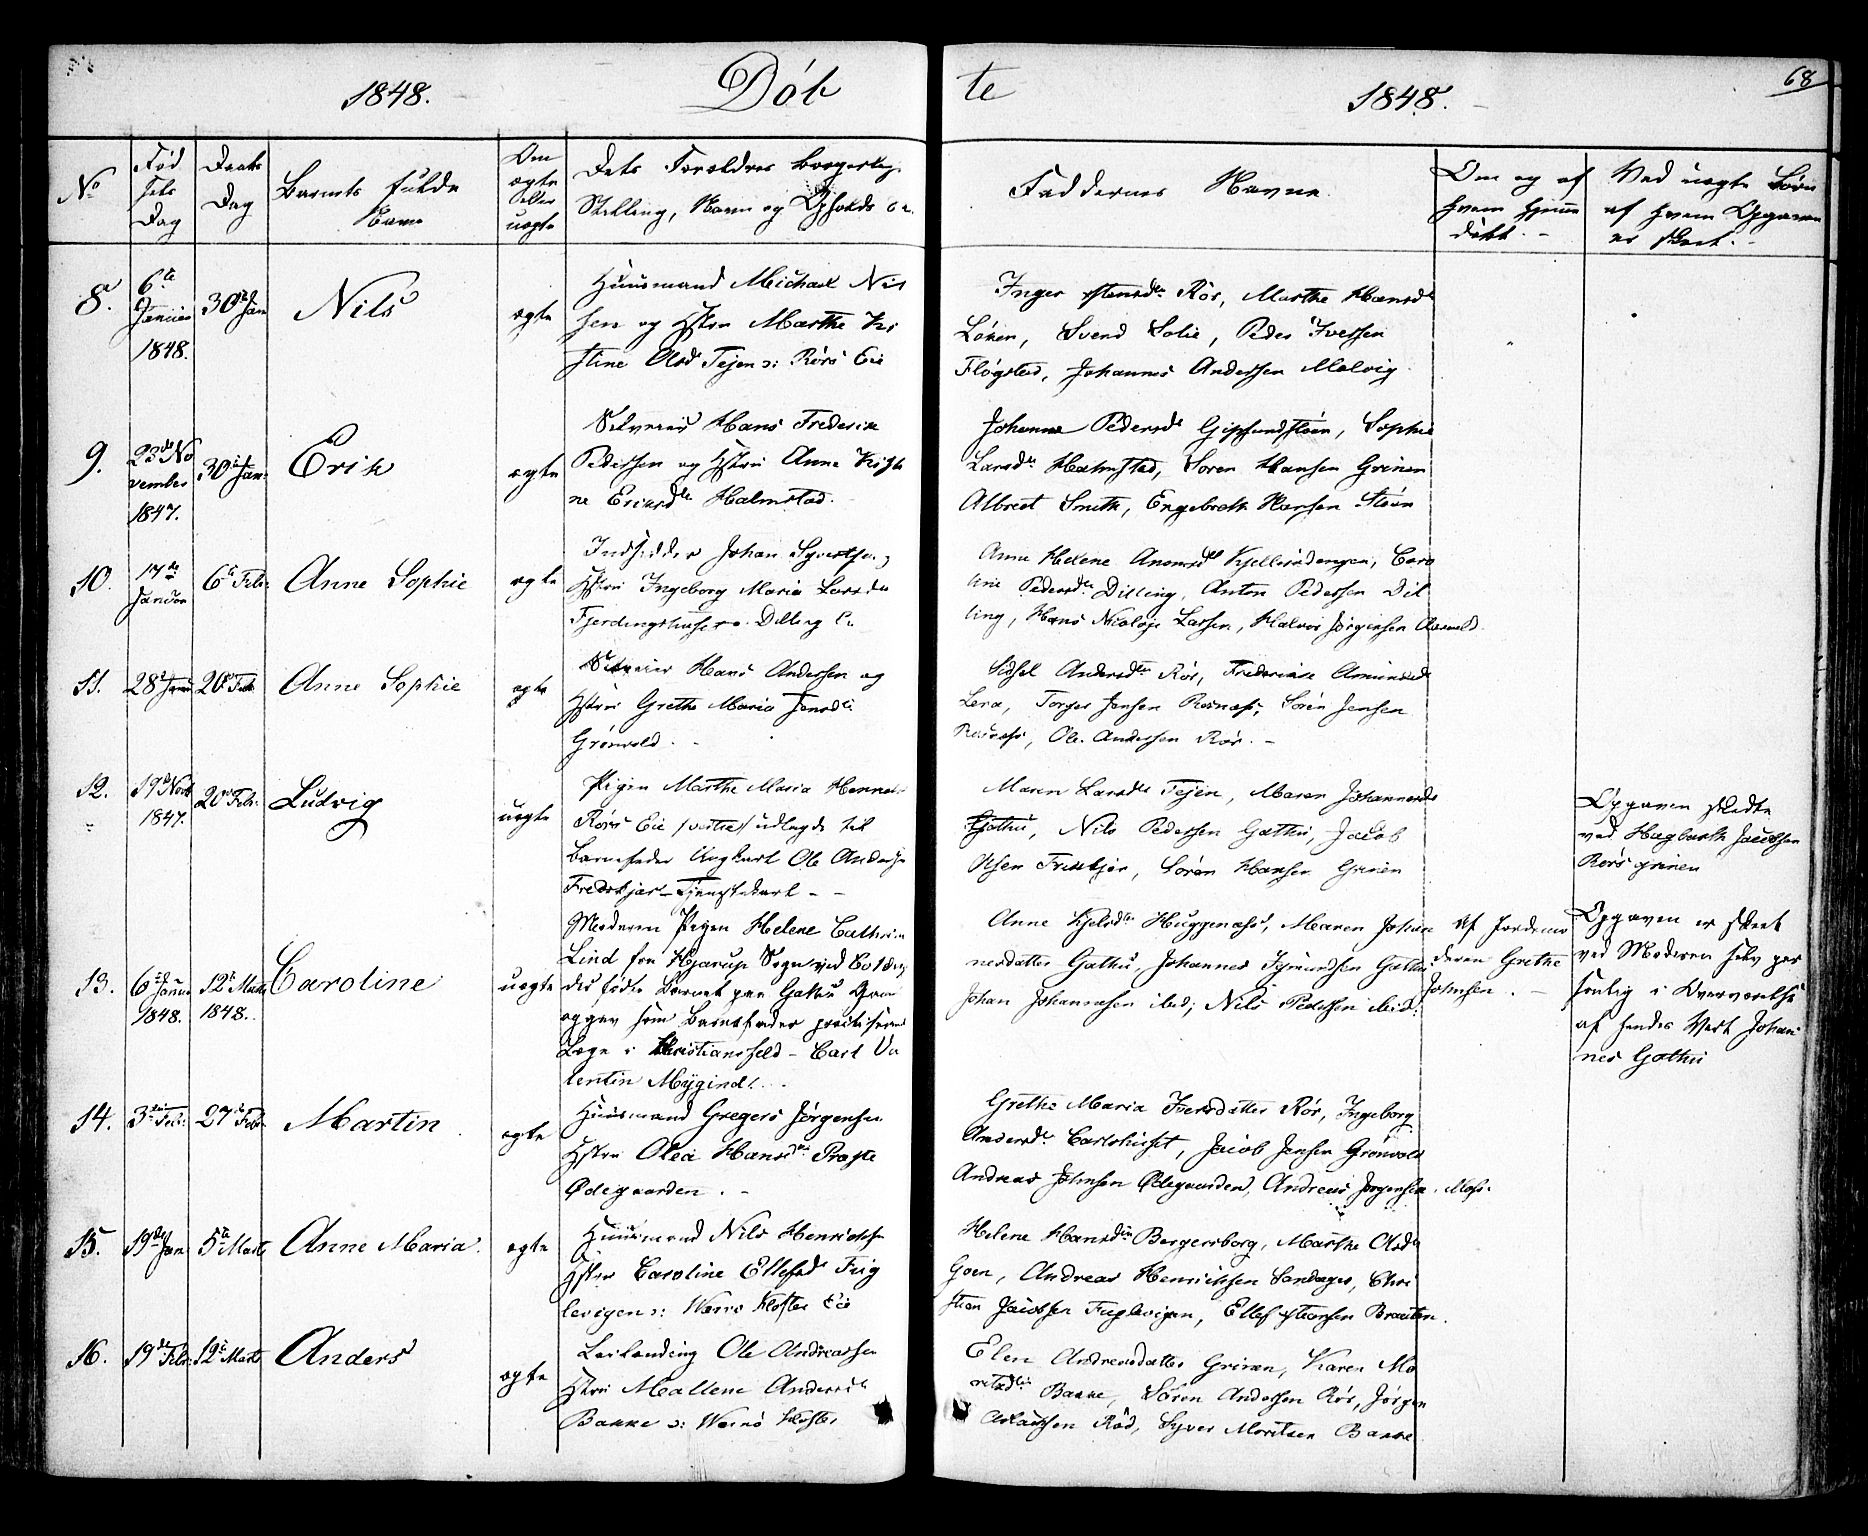 68
1848. Döb te 1848.
No
Fød
sels
Dag
Daabs
Dag
Barnets fulde
Navn
Om
ægte
eller
uægte
Dets Forældres borgerlige
Stilling, Navn og Opholds
Faddernes Navne
Om og af
hvem hjemme
döbt.
Ved uægte Børn
af hvem Opgaven
er skeet.
8. 6te
Januar
1848.
30te Jan
Nils
ægte
Huusmand Michael Nil
sen og Hstru Marthe Kri
stine Olsd Tejen ɔ: Rørs Eie
Inger Stensdtr Rör, Marthe Hansdtr
Löken, Svend Solie, Peder Iversen
Flögstad, Johannes Andersen Molvig
9. 23de No
vember
1847.
30te Jan.
Erik
ægte
Selveier Hans Frederik
Pedersen og Hstru Anne Kristi
ne Ericsdtr Halmstad.
Johanne Pedersdtr Gipsundstöen, Sophie
Larsdtr Halmstad, Soren Hansen Grinen
Albreet Smith, Engebreth Hansen Stöen
10. 17de
Januar
6te Febr.
Anne Sophie
ægte
Indsidder Johan Syvertsen,
Hstru Ingeborg Maria Larsdtr
Fjerdingshuset Dilling
Anne Helene Kjellerødengen, Caro
line Pedersdtr Dilling, Anton Pedersen Dil
ling, Hans Nicolaje Larsen, Halvor Jörgensen
11. 28de Januar 20de Feb.
Anne Sophie
ægte
Selveier Hans Andersen og
Hstru Grethe Maria Jensdtr
Grönvold.
Sidsel Andersdtr Rör, Frederikke Amundsd
Lera, Torger Jensen Rosnæs, Sören Jensen
Rosnæs, Ole Andersen Rör.
12. 19de Novb
1847.
20de Febr.
Ludvig
uægte
Pigen Marthe Maria
Rørs Eie udlagde til
Barnefader Ungkarl Ole Andersen
Tjenestekarl
Maren Larsdtr Tejen, Maren Johannesdtr
Gathu, Nils Pedersen Gathu, Jacob
Olsen, Sören Hansen Grinen
Opgaven skedte
ved Hagbarth Jacobsen
Rörsgrinen
13. 6te Januar
1848.
12te Marts
1848.
Caroline
uægte
Moderen Pigen Helene Cathrin
Lind fra Hjarup Sogn ved Colding
der födte Barnet paa Gathu
opgav som Barnefader practiserende
Læge i Christiansfeld – Carl Va
lentin Mygind.
Anne Kjelsdtr Huggenæs, Maren Johan
nesdatter Gathu, Johannes Gathu
Johan Johannesen ibid; Nils Pedersen ibid.
Af Jordemo
deren Grethe
Johnsen.
Opgaven er skeet
ved Moderen selv per
sonlig i Overværelse
af hendes Vert Johan
nes Gathu
14. 3die Feb. 27de Feb.
Martin
ægte
Huusmand Gregers Jörgensen
Hstru Olea Hansdtr Præste
Ødegaarden.
Grethe Maria Iversdatter Rör, Ingeborg
Andersdtr Carlshuset, Jacob Jensen Grönvold
Andreas Johnsen Ødegaarden, Andreas Jörgensen Moss.
15. 19de Jan 5te Marts
Anne Maria
ægte
Huusmand Nils Henriksen
Hstru Caroline Ellefsdtr Fug
levigen ɔ: Værne Kloster Eie
Helene Hansdtr Bergersborg, Marthe Olsdtr
Goen, Andreas Henriksen Sandager, Chri
stian Jacobsen Fuglevigen, Ellef Braaten.
16. 19de Febr. 12te Marts
Anders
ægte
Leilænding Ole Andreassen
Hstru Mallene Andersdtr
Bakke ɔ: Værne Kloster
Elen Andreasdatter Grinen, Karen Mo
ritsdtr Bakke, Sören Andersen Rör, Jörgen
Aslacksen Röd, Syver Moritsen Bakke